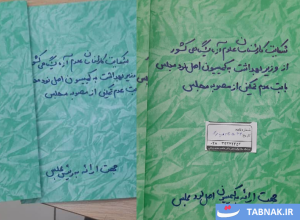 شکایت کارشناسان علوم آزمایشگاهی کشور
از وزیر بهداشت به کمیسیون اصل نود مجلس
بابت عدم تمکین از مصوبه مجلس
جهت ارائه به رئیس مجلس
شکایت کارشناسان علوم آزمایشگاهی کشور
از وزیر بهداشت به کمیسیون اصل نود مجلس
بابت عدم تمکین از مصوبه مجلس
جهت ارائه به کمیسیون اصل نود مجلس
TABNAK.IR